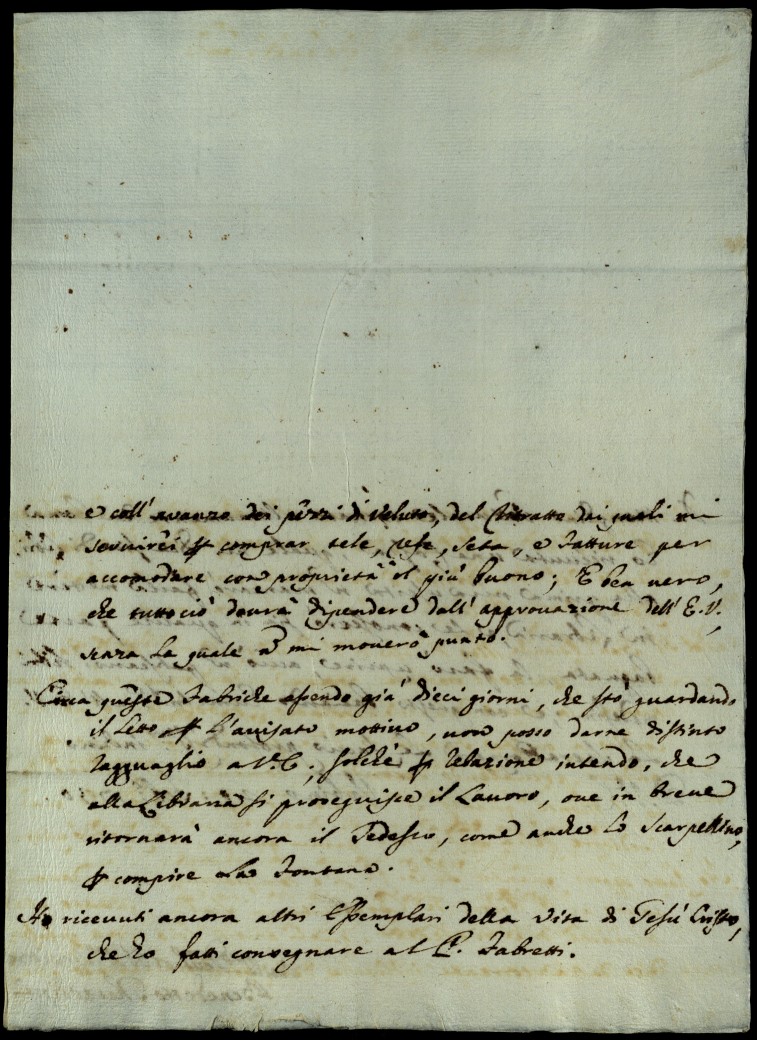 e coll' avanzo dei pezzi di Veluto, del Ritratto dai quali mi
servirei p comprar tele, refe, seta, e fatture per
accomodare con proprietà il più buono; E ben vero,
che tuttociò dovrà dipendere dall' approvazione dell' E. V.
senza la quale ñ mi moverò punto.
Circa queste Fabriche essendo già dieci giorni, che stò guardando
il Letto p l'avisato mottivo, non posso darne distinto
ragguaglio a V. E.; solchè p relazione intendo, che
alla Libraria si proseguisce il Lavoro, ove in breve
ritornarà ancora il Tedesco, come anche lo Scarpellino,
p compire la Fontana.
Hò ricevuti ancora altri Essemplari della Vita di Gesù Cristo,
che hò fatti consegnare al P. Fabretti.